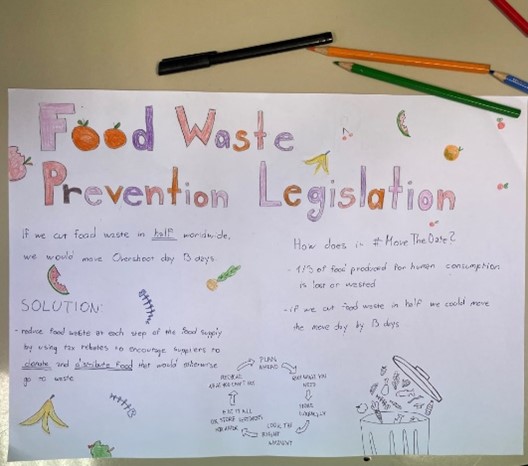 Food Waste
Prevention Legislation
If we cut food waste in half worldwide,
we would move Overshoot day 13 days.
SOLUTION:
- reduce food waste at each step of the food supply
by using tax rebates to encourage suppliers to
donate and distribute food that would otherwise
go to waste
How does it #MoveTheDate?
- 1/3 of food produced for human consumption
is lost or wasted
- if we cut food waste in half we could move
the move day by 13 days
PLAN
AHEAD
BUY WHAT YOU
NEED
STORE
COOK THE
RIGHT
AMOUNT
EAT IT ALL
OR STORE
FOR LATER
WHAT YOU CAN'T USE